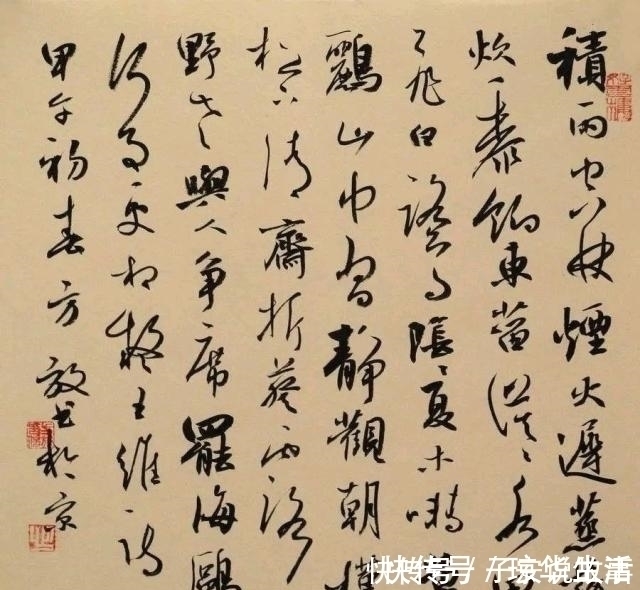 積雨空林煙火遲蒸藜
炊黍餉東菑漠漠水
飛白鷺陰陰夏木囀黃
鸝山中習靜觀朝槿
松下清齋折葵
野老與人爭席罷海鷗
何事更相疑王維詩
甲午初春方書於京
快传号/生活